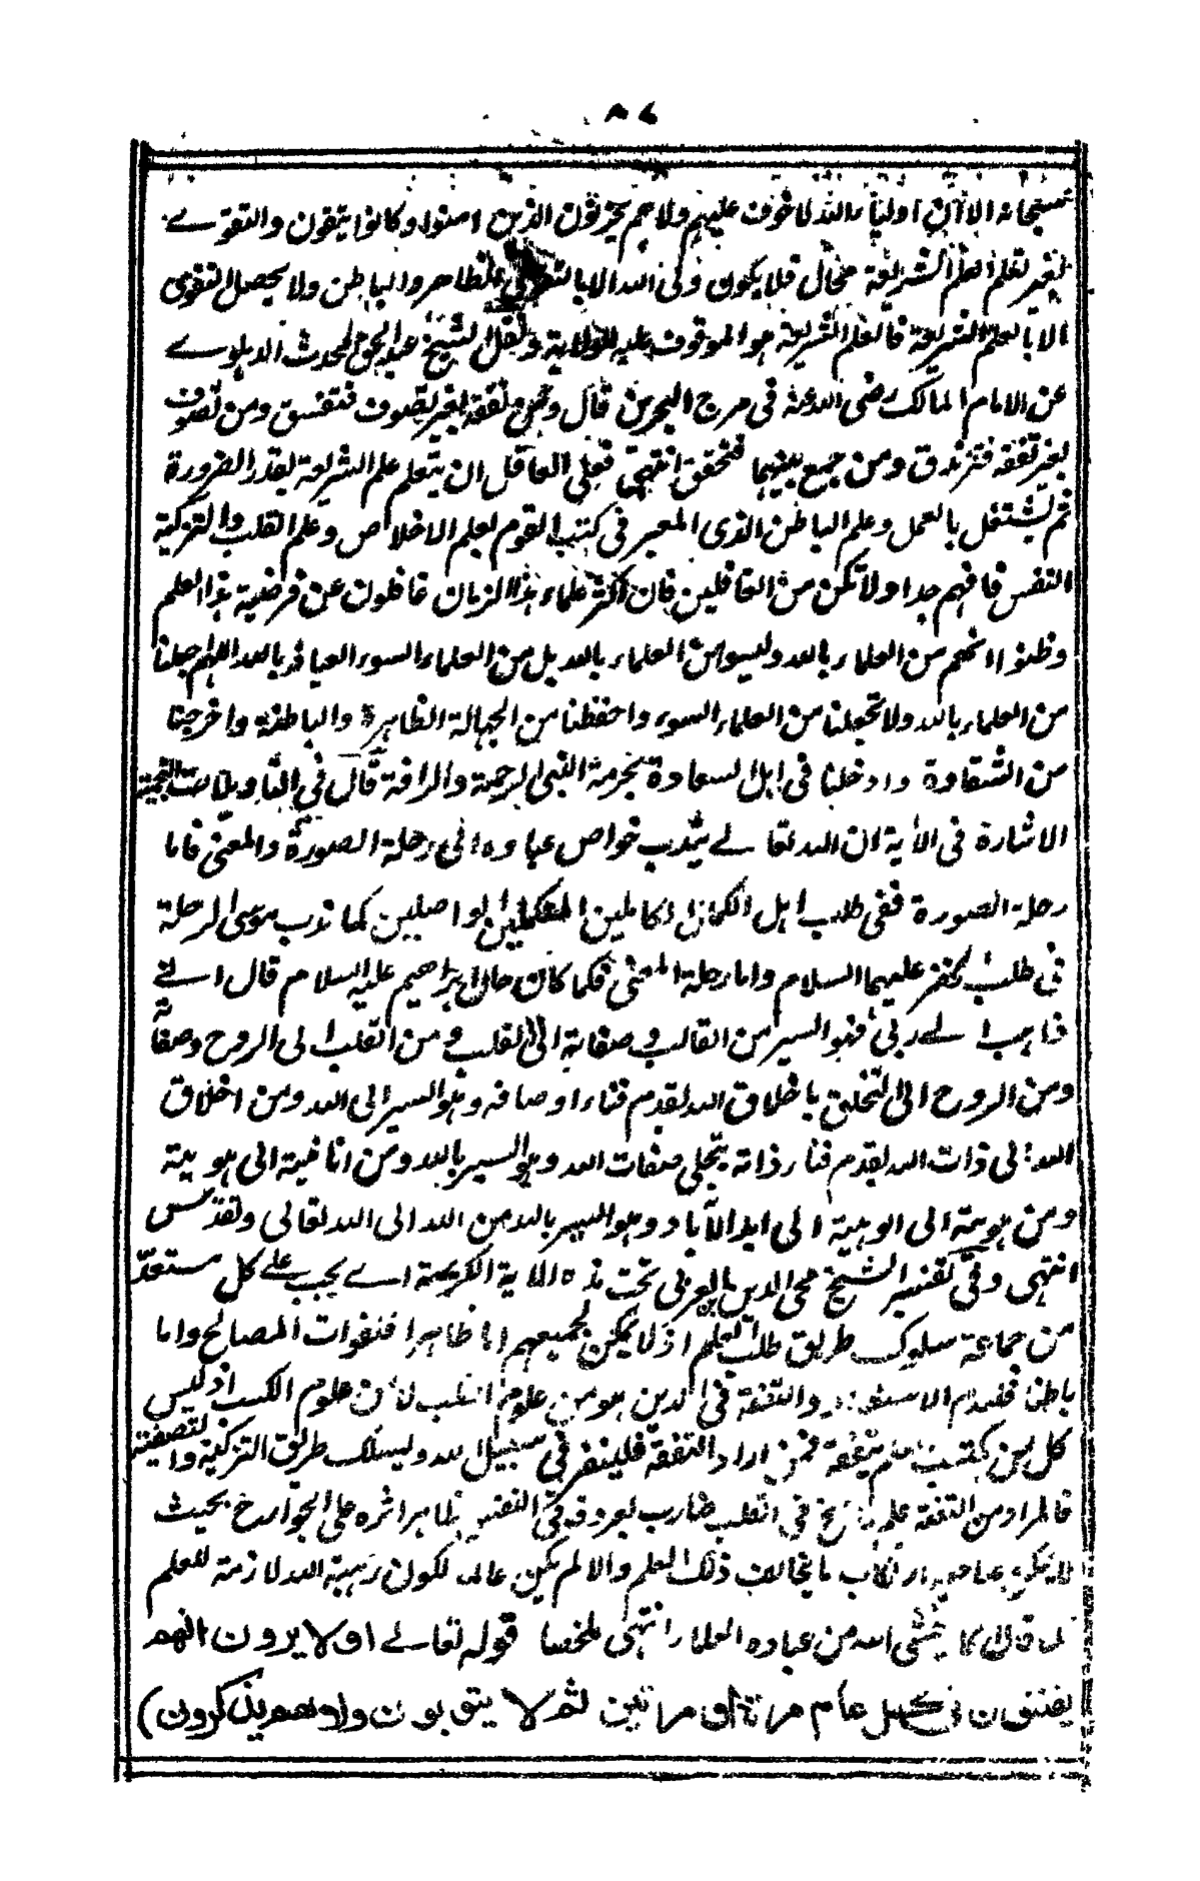 ٨٤
سبحانه الا ان اولیاء الله لا خوف علیهم ولا هم یحزنون الذین امنوا وکانوا یتقون والتقوے
بغیر تعلم علم الشریعة محال فلا یکون ولی الله الا بالتقوی الظاهر والباطن ولا یحصل التقوی
الا بالعلم الشریعة فالعلم الشریعة هو الموقوف علیه للولایة ونقل الشیخ عبد الحق المحدث الدهلوے
عن الامام المالک رضی الله عنه فی مرج البحرین قال ومن تفقه بغیر تصوف فتفسق ومن تصوف
بغیر تفقه فتزندق ومن جمع بینهما فتحقق انتهی فعلی العاقل ان یتعلم علم الشریعة بقدر الضرورة
ثم یشتغل بالعمل وعلم الباطن الذی المعبر فی کتب القوم بعلم الاخلاص وعلم القلب والتزکیة
النفس فافهم جدا ولا تکن من الغافلین فان اکثر علماء هذا الزمان غافلون عن فرضیة هذا العلم
وظنوا انهم من العلماء بالله ولیسوا من العلماء بالله بل من العلماء السوء العیاذ بالله اللهم اجعلنا
من العلماء بالله ولا تجعلنا من العلماء السوء واحفظنا من الجهالة الظاهرة والباطنة واخرجنا
من الشقاوة وادخلنا فی اهل السعادة بحرمة النبی الرحمة والرافة قال فی التاویلات النجمیة
الاشارة فی الآیة ان الله تعالے یندب خواص عباده الی رحلة الصورة والمعنی فاما
رحلة الصورة ففی طلب اهل الکمال الکاملین المکملین الواصلین کما ندب موسی الرحلة
فی طلب الخضر علیهما السلام واما رحلة المعنی فکما کان حال ابراهیم علیه السلام قال انے
ذاهب الے ربی فهو السیر من القالب وصفاته الی القلب ومن القلب الی الروح وصفاته
ومن الروح الی التخلق باخلاق الله بقدم فناء اوصافه وهو السیر الی الله ومن اخلاق
الله الی ذات الله بقدم فناء ذاته بتجلی صفات الله وهو السیر بالله ومن انانیته الی هویته
ومن هویته الی الوهیته الی ابد الآباد وهو السیر بالله من الله الی الله تعالی وتقدس
انتهی وفی تفسیر الشیخ محی الدین العربی تحت هذه الایة الکریمة اے یجب علے کل مستعد
من جماعة سلوک طریق طلب العلم اذ لا یمکن لجمیعهم اما ظاهرا فلفوات المصالح واما
باطنا فلعدم الاستعداد والتفقه فی الدین هو من علوم القلب لا من علوم الکسب اذ لیس
کل من یکتسب العلم یتفقه فمن اراد التفقه فلینفر فی سبیل الله ولیسلک طریق التزکیة والتصفیة
فالمراد من التفقه علم راسخ فی القلب ضارب بعروقه فی النفس ظاهر اثره علی الجوارح بحیث
لا یمکن صاحبه ارتکاب ما یخالف ذلک العلم والا لم یکن عالما لکون رهبة الله لازمة للعلم
کما قال انما یخشی الله من عباده العلماء انتهی ملخصا قوله تعالے اولا یرون انهم
یفتنون فی کل عام مرة او مرتین ثم لا یتوبون ولا هم یذکرون)